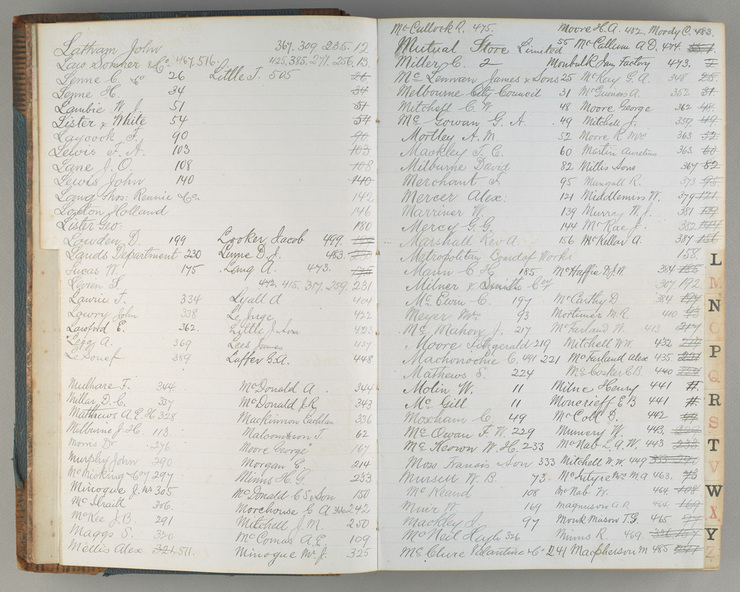 Latham John 367. 309. 235. 12
Lays Sommer & Co 467. 516. 425, 385, 271, 256, 13
Lyone C & Co 26 Little T. 505
Lyone H 34 34
Lambie W. J. 51 51
Lister & White 54 54
Laycock F. 90 90
Lewis T. A. 103 103
Lane J. O. 108 108
Lewis John 140 140
Lang Thos. Rennie & Co 142
Layton Holland 146
Lister Geo. 180
Lowden D. 199 Looker Jacob 499.
Lands Department 230 Lume D. J. 483.
Lucas W. 175 Lang A. 473.
Loran S. 472. 415. 317. 259. 231
Laurie T. 334 Lyall A 404
Lowry John 338 Le juge 422
Laifold E. 362. Little J. Son 423
Legg A. 369 Lees James 427
L. Jouef 389 Laffer G. A. 448
Mulhare F. 344 McDonald A. 344
Millar D. C. 307 McDonald J. R. 343
Mathews A. E. H 328 MacKinnon Lachlan 336
Milburne J. H. 113 Malcomson J. 62
Morris Dr 276 Moore George 167
Murphy John 290 Morgan E. 214
McMicking & Coy 297 Mims H. G. 233
Minogue J. Mrs 305 McDonald C & Son 150
Mc 306. Morehouse G A 242
McKee J. B. 291 Mitchell J. M. 250
Maggs S. 350 McComas A. E. 109
Mellis Alex 321 511. Minogue W. J. 325
McCullock R. 475. Moore H. A. 482. Moody C. 483.
Mutual Store Limited 55 McCallum A D. 474.
Miller C. 2 Monbulk Jam Factory 473.
McLennan James & Sons 25 McKay G. A 348 25
Melbourne City Council 31 McGuiness A 352 31
Mitchell C. W. 48 Moore George 362 48
McGowan G. A. 49 Mitchell J. 359 49
Mortley A. M 52 Moore R. Mrs 363 52
Mackley T. C. 60 Martin Aurelius 363 60
Melburne David 82 Mills Sons 367 82
Merchant L 95 Mungall R. 373 95
Mercer Alex. 121 Middlemiss W. 379 121
Marriner W. 139 Murray W. J. 381 139
Mercy G. G. 144 McRae J. 382 144
Marshall Rev A. 156 McKellar A. 387 156
Metropolitan Board of Works 158.
Mann C H 185 McHaffie D/S. W. 384 185
Milner & Smith Coy 307 192
McEwin C. 197 McCarthy D 384 197
Meyer Mr 93 Mortimer M. A. 440 93
McMahon J. 217 McFarland W. 413 217
Moore Fitzgerald 219 Mitchell W. W. 432 219
Machonochie C. 441 221 McFarland Alex 435 221
Mathews S. 224 McCosker C. B. 440 224
Molin W. 11 Milne Henry 441 11
McGill 11 Moncrieff E. B 441 11
Moxham C. 49 McColl D. 442 49
McEwan F. W. 229 Mumery W. 443 229
McKeown W. H. 233 McNab L. A. W. 443 233
Moss Francis Son 333 Mitchell W. W. 449 333
Munsen W. B 73. McIntyre Mrs M. A 463. 73
McKeand 108 McNab W. 464 108
Muir W. 169 Magnusson A. R. 464 169
Mackley J. 97 Monk Mason T. G. 465 97
McNeil Hugh 326 Minns R. 469. 326
McClure Valantine & Co 241 Macpherson M 485 241
L
M
N
O
P
Q
R
S
T
V
W
X
Y
Z